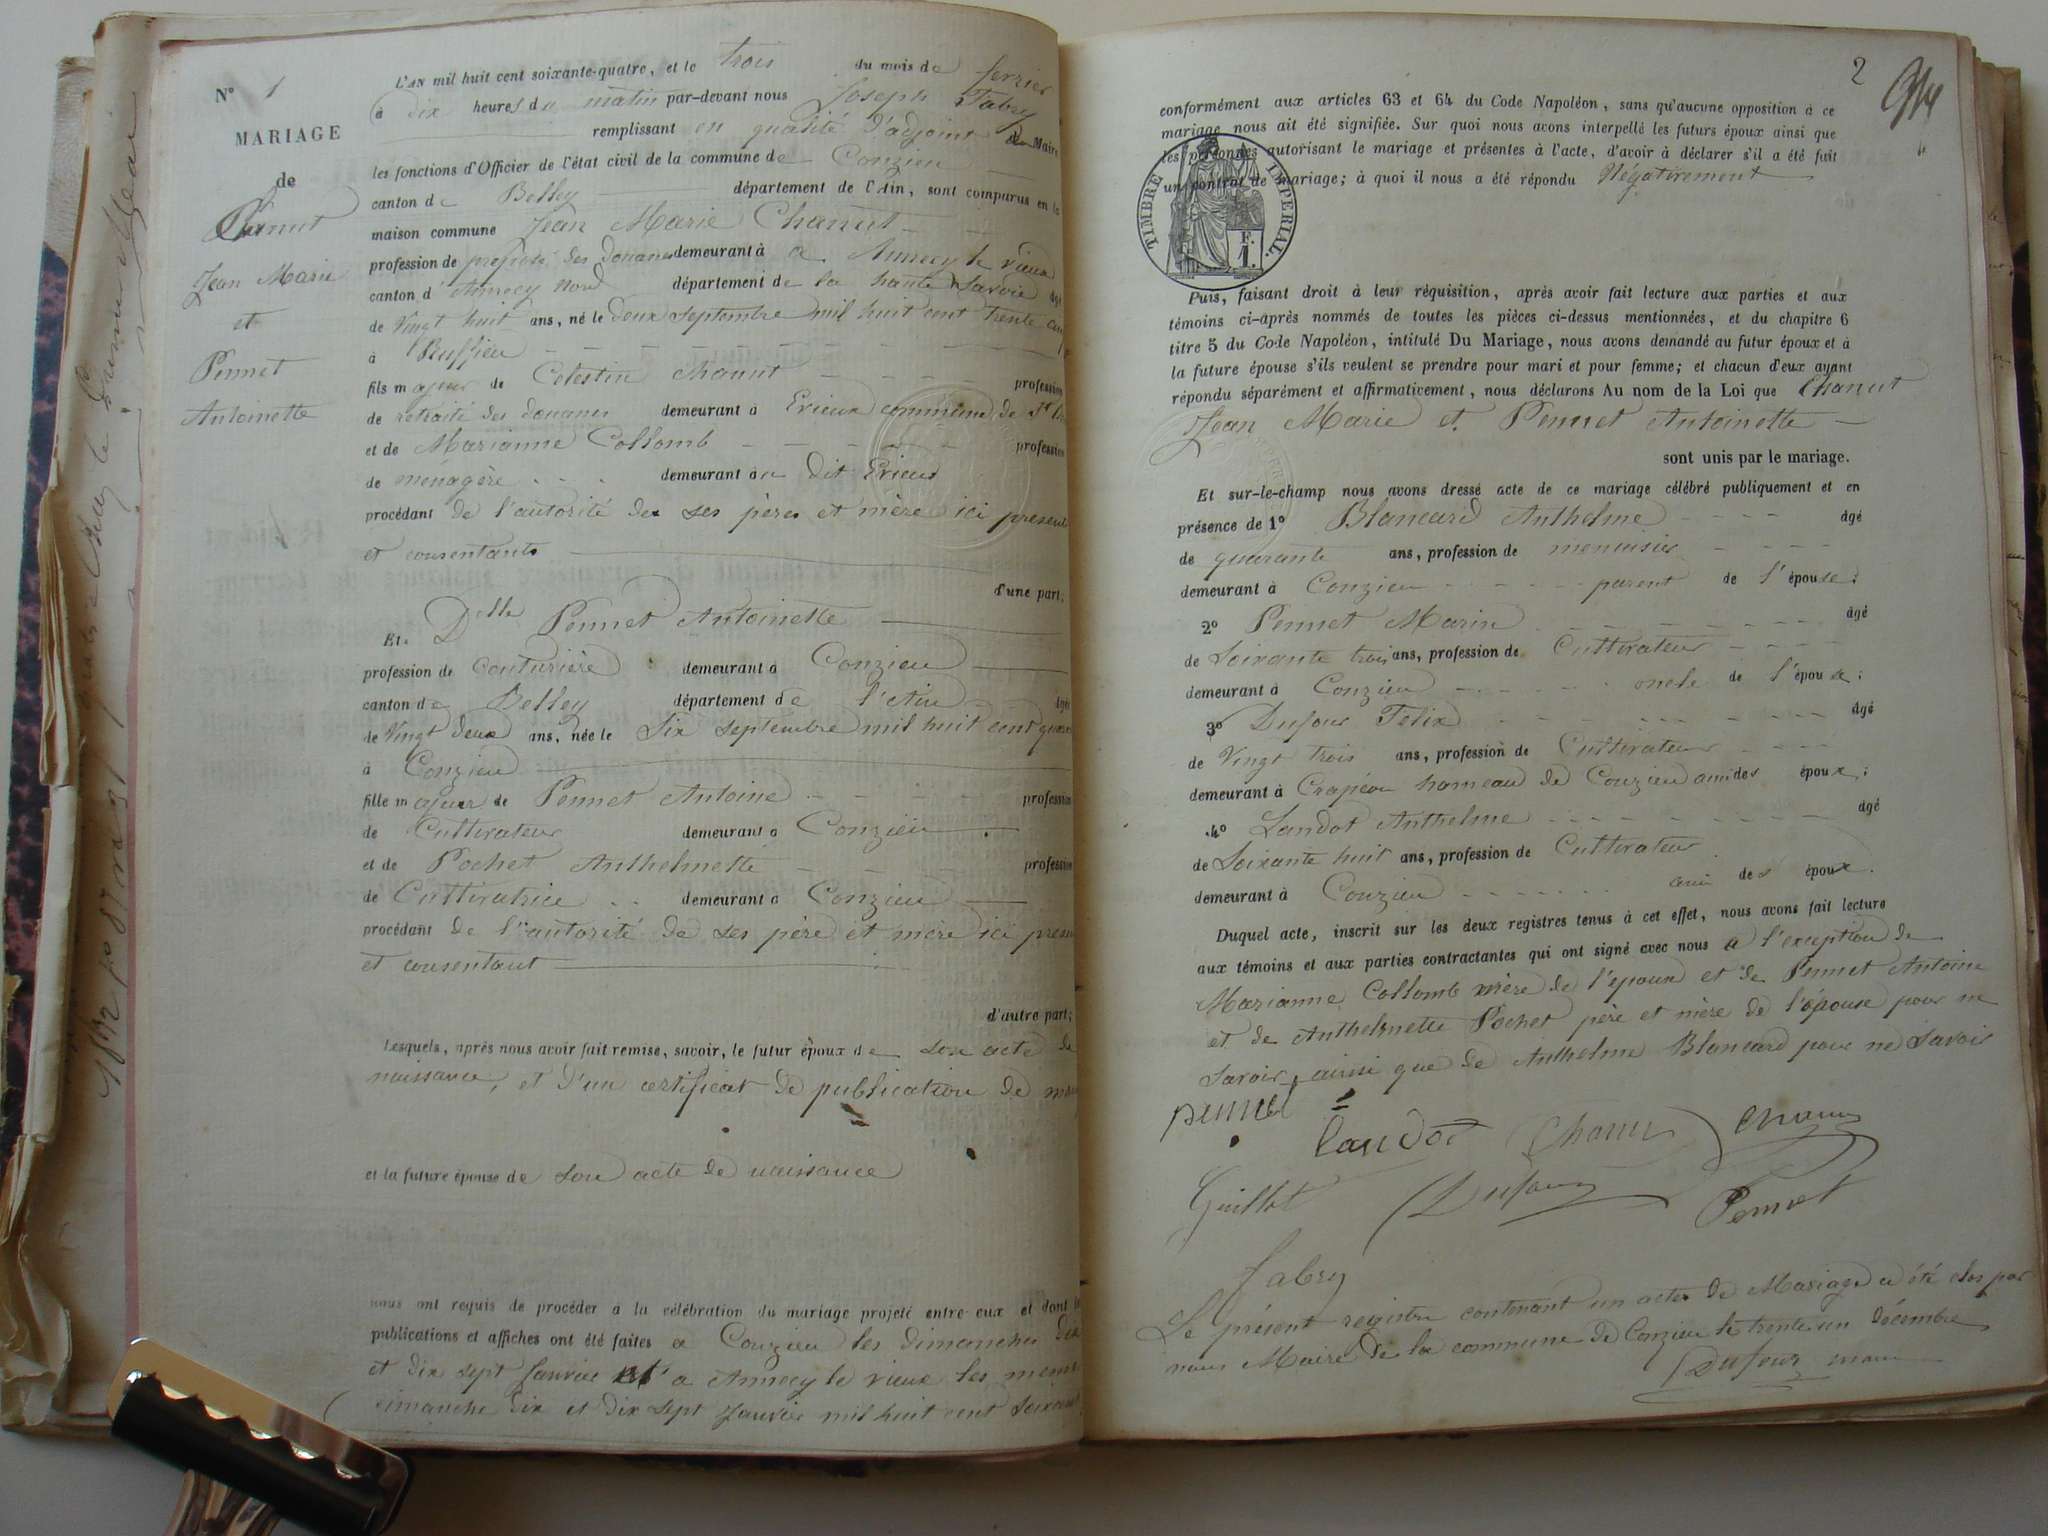 N° 1
MARIAGE
de
Chanut
Jean Marie
et
Pennet
Antoinette
L'AN mil huit cent soixante-quatre, et le trois du mois de fevrier
à dix heures du matin par-devant nous Joseph Fabry
remplissant en qualité d'adjoint Maire
les fonctions d'Officier de l'état civil de la commune de Conzieu
canton de Belley département de l'Ain, sont comparus en la
maison commune Jean Marie Chanut
profession de préposé des douanes demeurant à a Annecy le vieux
canton d'Annecy Nord département de la haute Savoie âgé
de Vingt huit ans, né le deux septembre mil huit cent trente cinq
à Ruffieu
fils majeur de Celestin Chanut profession
de retraité des douanes demeurant à Erieux commune de St
et de Marianne Collomb profession
de ménagère demeurant au dit Erieux
procédant de l'autorité de ses pères et mère ici present
et consentants
d'une part;
Et Delle Pennet Antoinette
profession de Couturière demeurant à Conzieu
canton de Belley département de l'Ain âgée
de Vingt deux ans, née le Six septembre mil huit cent
à Conzieu
fille majeur de Pennet Antoine profession
de Cultivateur demeurant à Conzieu
et de Pochet Anthelmette profession
de Cultivatrice demeurant à Conzieu
procédant de l'autorité de ses père et mère ici
et consentant
d'autre part;
Lesquels, après nous avoir fait remise, savoir, le futur époux de son acte de
naissance, et d'un certificat de publication de
et la future épouse de son acte de naissance
nous ont requis de procéder à la célébration du mariage projeté entre eux et dont les
publications et affiches ont été faites a Conzieu les dimanches dix
et dix sept Janvier et a Annecy le vieux les meme
dimanche dix et dix sept Janvier mil huit cent
2
conformément aux articles 63 et 64 du Code Napoléon, sans qu'aucune opposition à ce
mariage nous ait été signifiée. Sur quoi nous avons interpellé les futurs époux ainsi que
les personnes autorisant le mariage et présentes à l'acte, d'avoir à déclarer s'il a été fait
un contrat de mariage; à quoi il nous a été répondu Négativement
TIMBRE IMPERIAL.
F.
1.
Puis, faisant droit à leur réquisition, après avoir fait lecture aux parties et aux
témoins ci-après nommés de toutes les pièces ci-dessus mentionnées, et du chapitre 6
titre 5 du Code Napoléon, intitulé Du Mariage, nous avons demandé au futur époux et à
la future épouse s'ils veulent se prendre pour mari et pour femme; et chacun d'eux ayant
répondu séparément et affirmativement, nous déclarons Au nom de la Loi que Chanut
Jean Marie et Pennet Antoinette
sont unis par le mariage.
Et sur-le-champ nous avons dressé acte de ce mariage célébré publiquement et en
présence de 1° Blancard Anthelme âgé
de quarante ans, profession de menuisier
demeurant à Conzieu parent de l'épouse;
2° Pennet Marin âgé
de Soixante trois ans, profession de Cultivateur
demeurant à Conzieu oncle de l'épouse;
3° Dufour Felix âgé
de Vingt trois ans, profession de Cultivateur
demeurant à Crapéou hameau de Conzieu ami des époux;
4° Landot Anthelme âgé
de Soixante huit ans, profession de Cultivateur
demeurant à Conzieu ami des époux.
Duquel acte, inscrit sur les deux registres tenus à cet effet, nous avons fait lecture
aux témoins et aux parties contractantes qui ont signé avec nous a l'exception de
Marianne Collomb mère de l'epoux et de Pennet Antoine
et de Anthelmette Pochet père et mère de l'épouse pour ne
savoir, ainsi que de Anthelme Blancard pour ne Savoir
pennet
landot Chanut Chanut
Guillot Dufour Pennet
fabry
Le présent registre contenant un acte de Mariage a été clos par
nous Maire de la commune de Conzieu le trente un décembre
Dufour maire